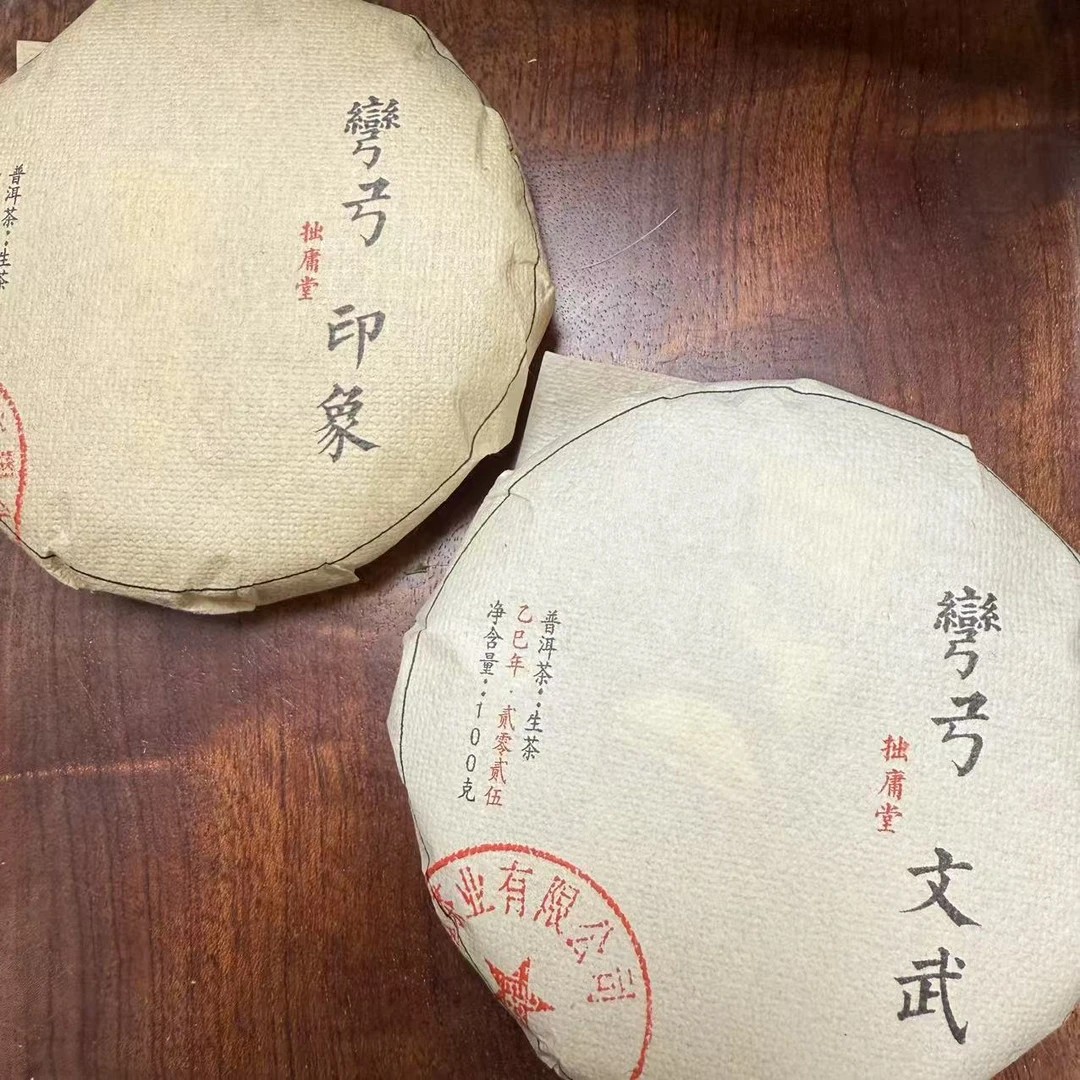 彎弓
印象
拙庸堂
普洱茶：生茶
彎弓
文武
拙庸堂
普洱茶：生茶
乙巳年·贰零贰伍
净含量：100克
业有限公司